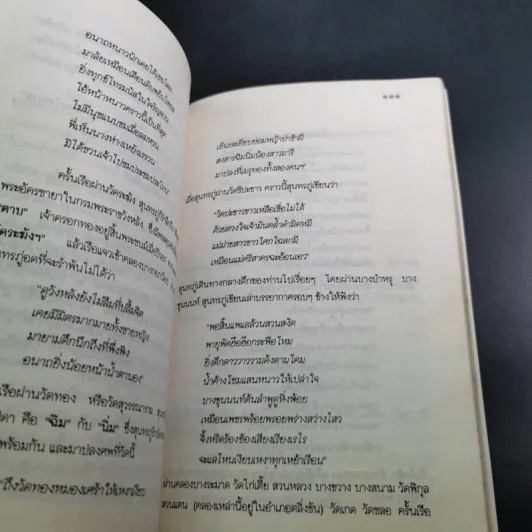 อนาถหนาวนักเคยได้เชย
มาลัยเหมือนเดือนดับพยับโพยม
ยิ่งทุกข์โทรมนัสในใจ
โอ้หน้าหนาวคราวนี้เป็นที่สุด
ไม่มีนุชแนบชมเมื่อลมหวน
พี่เห็นนางห่างเหยังเรรวน
มิได้ชวนเจ้าไปชมประชม
ครั้นเรือผ่านวัดระฆัง สุนทรภู่
พระอัครชายาในกรมพระราชวังหลัง
เจ้าครอกทองอยู่สิ้นพระชนม์
แล้วเรือแจวเข้าคลองบาง
ทรภู่อดที่จะรำพันไม่ได้ว่า
"ดูวังหลังยังไม่ลืมที่ปลื้มจิต
เคยมีมิตรมากมายทั้งชายหญิง
มายามดึกนึกถึงที่พึ่งพิง
อนาถยิ่งน้อยหน้าน้ำตานอง"
เรือผ่านวัดทอง หรือวัดสุวรรณาราม
ดา คือ "ฉิม" กับ "นิ่ม"
พร้อมกัน และมาปลงศพที่วัดนี้
"ถึงวัดทองหมองเศร้าให้เหงาเงียบ
๑๑๑
เย็นยะเยียบย่อมหญ้าป่าช้าผี
สงสารฉิมนิ่มน้องสาวมารี
มาปลงที่เมรุทองทั้งสองคนฯ"
เมื่อสุนทรภู่ผ่านวัดชีปะขาว คราวนี้สุนทรภู่เขียนว่า
"วัดปะขาวขาวเหลือเชื่อไม่ได้
ด้วยดวงใจเจ้ามันดล้ำดำมิดหมี
แม่ม่ายสาวขาวโศกโฉลกมี
เหมือนแม่ศรีสาครจะย้อนเอว"
สุนทรภู่เดินทางกลางดึกของท่านไปเรื่อยๆ โดยผ่านบางบำหรุ บาง
ขุนนนท์ สุนทรภู่เขียนเล่าบรรยากาศรอบๆ ข้างให้ฟังว่า
"พอสิ้นแพแลล้วนสวนสงัด
พายุพัดยือยือกระพือโหม
ยิ่งดึกดาววาววามดังตามโคม
น้ำค้างโซมแสนหนาวให้เปล่าใจ
บางขุนนนท์ต้นลำพูดูหิ่งห้อย
เหมือนเพชรพร้อยพรอยพร่างสว่างไสว
จิ้งหรีดร้องซ้องเสียงเรียงเรไร
จะแลไหนเงียบเหงาทุกเหย้าเรือน"
ผ่านคลองบางระมาด วัดไก่เตี้ย สวนหลวง บางขวาง บางสนาม วัดพิกุล
สวนแดน (คลองเหล่านี้อยู่ในอำเภอตลิ่งชัน) วัดเกด วัดชลอ ครั้นเรือ